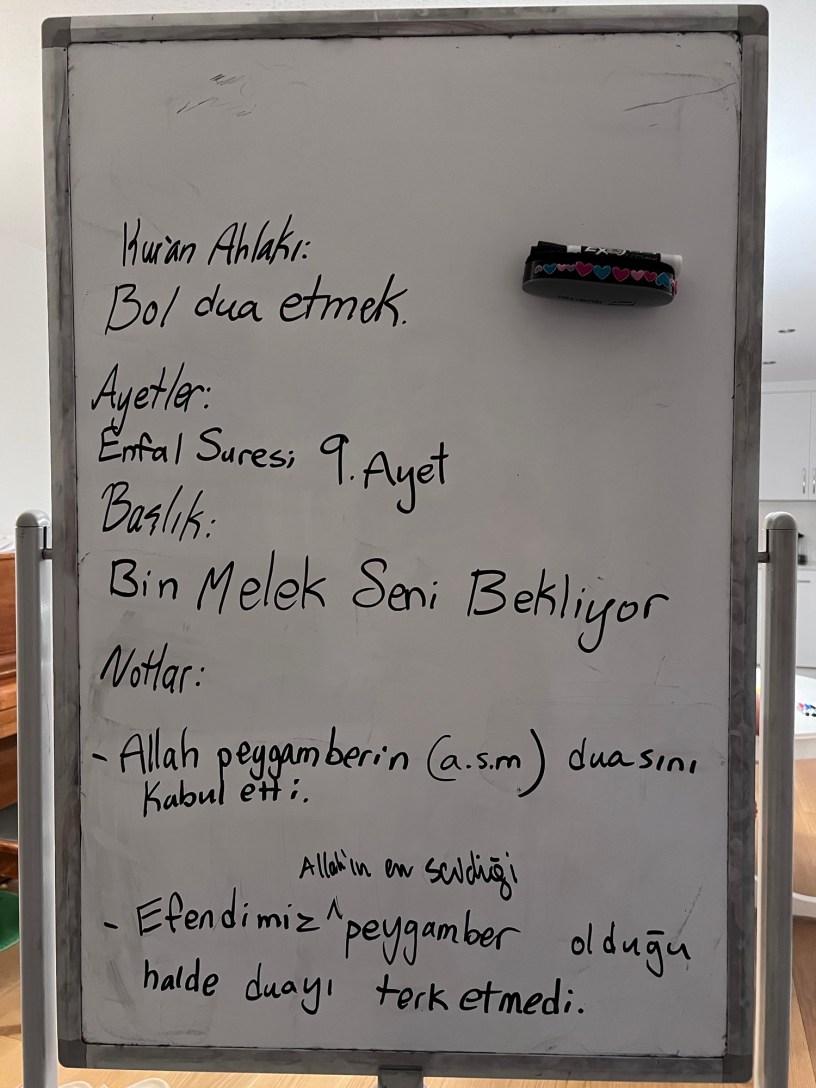 Kur'an Ahlakı:
Bol dua etmek.
Ayetler:
Enfal Suresi 9. Ayet
Başlık:
Bin Melek Seni Bekliyor
Notlar:
- Allah peygamberin (a.s.m) duasını
kabul etti.
Allah'ın en sevdiği
- Efendimiz ^ peygamber olduğu
halde duayı terk etmedi.